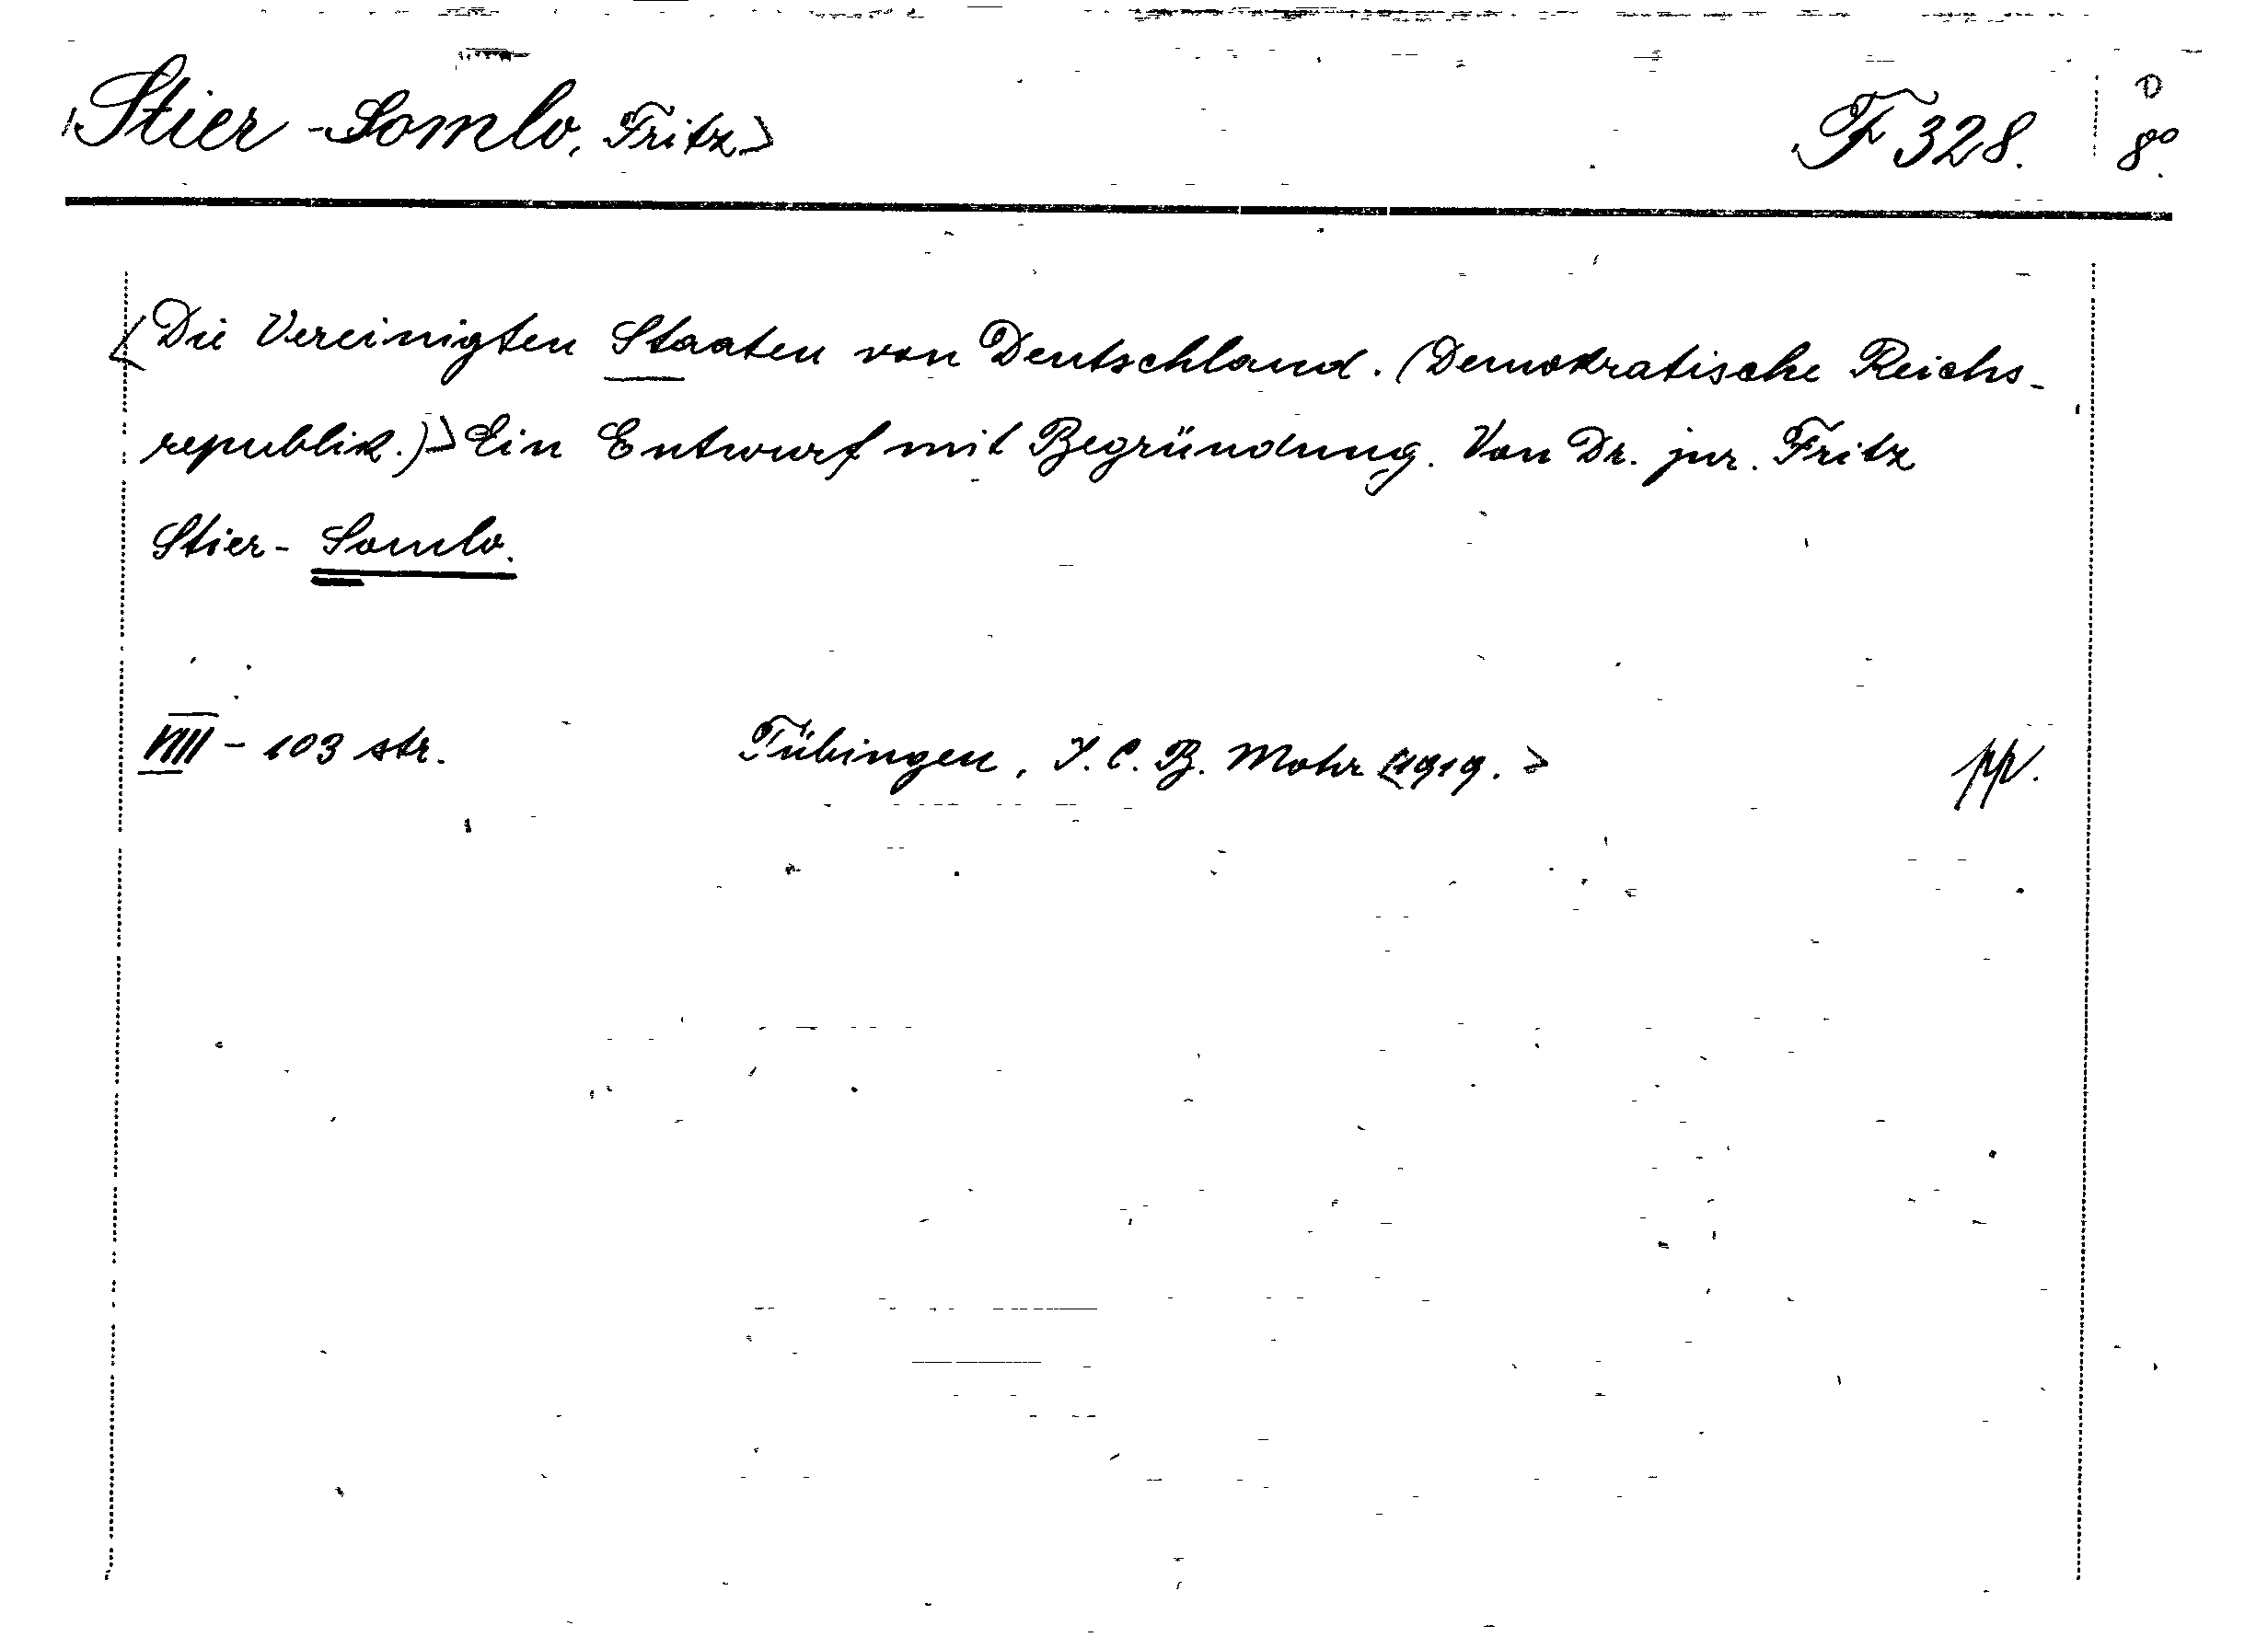 Stier-Somlo, Fritz> F 328. D 8°.
<Die Vereinigten Staaten von Deutschland. (Demokratische Reichs-
republik.)> Ein Entwurf mit Begründung. Von Dr. jur. Fritz
Stier-Somlo.
VIII - 103 str. Tübingen, J. C. B. Mohr <1919.> pp.